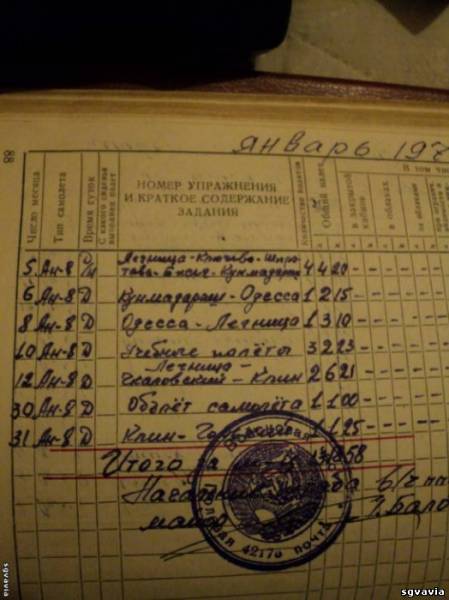 январь 197
88
Число месяца
Тип самолета
Время суток
С какого сиденья выполнял полет
НОМЕР УПРАЖНЕНИЯ
И КРАТКОЕ СОДЕРЖАНИЕ
ЗАДАНИЯ
Количество полетов
Общий налет
в закрытой кабине
в облаках
5 Ан-8 Легница-Ключево-Шпро-
тава- Кунмадараш 4 4 20 - - - -
6 Ан-8 Д Кунмадараш-Одесса 1 2 15 - - - -
8 Ан-8 Д Одесса-Легница 1 3 10 - - - -
10 Ан-8 Д Учебные полёты 3 2 23 - - - -
Легница-
12 Ан-8 Д Чкаловский-Клин 2 6 21 - - - -
30 Ан-8 Д Облёт самолёта 1 1 00 - - - -
31 Ан-8 Д Клин- 1 1 25 - - - -
Итого за
Начальник штаба в/ч пп
майор
полевая почта 42176
sgvavia
sgvavia